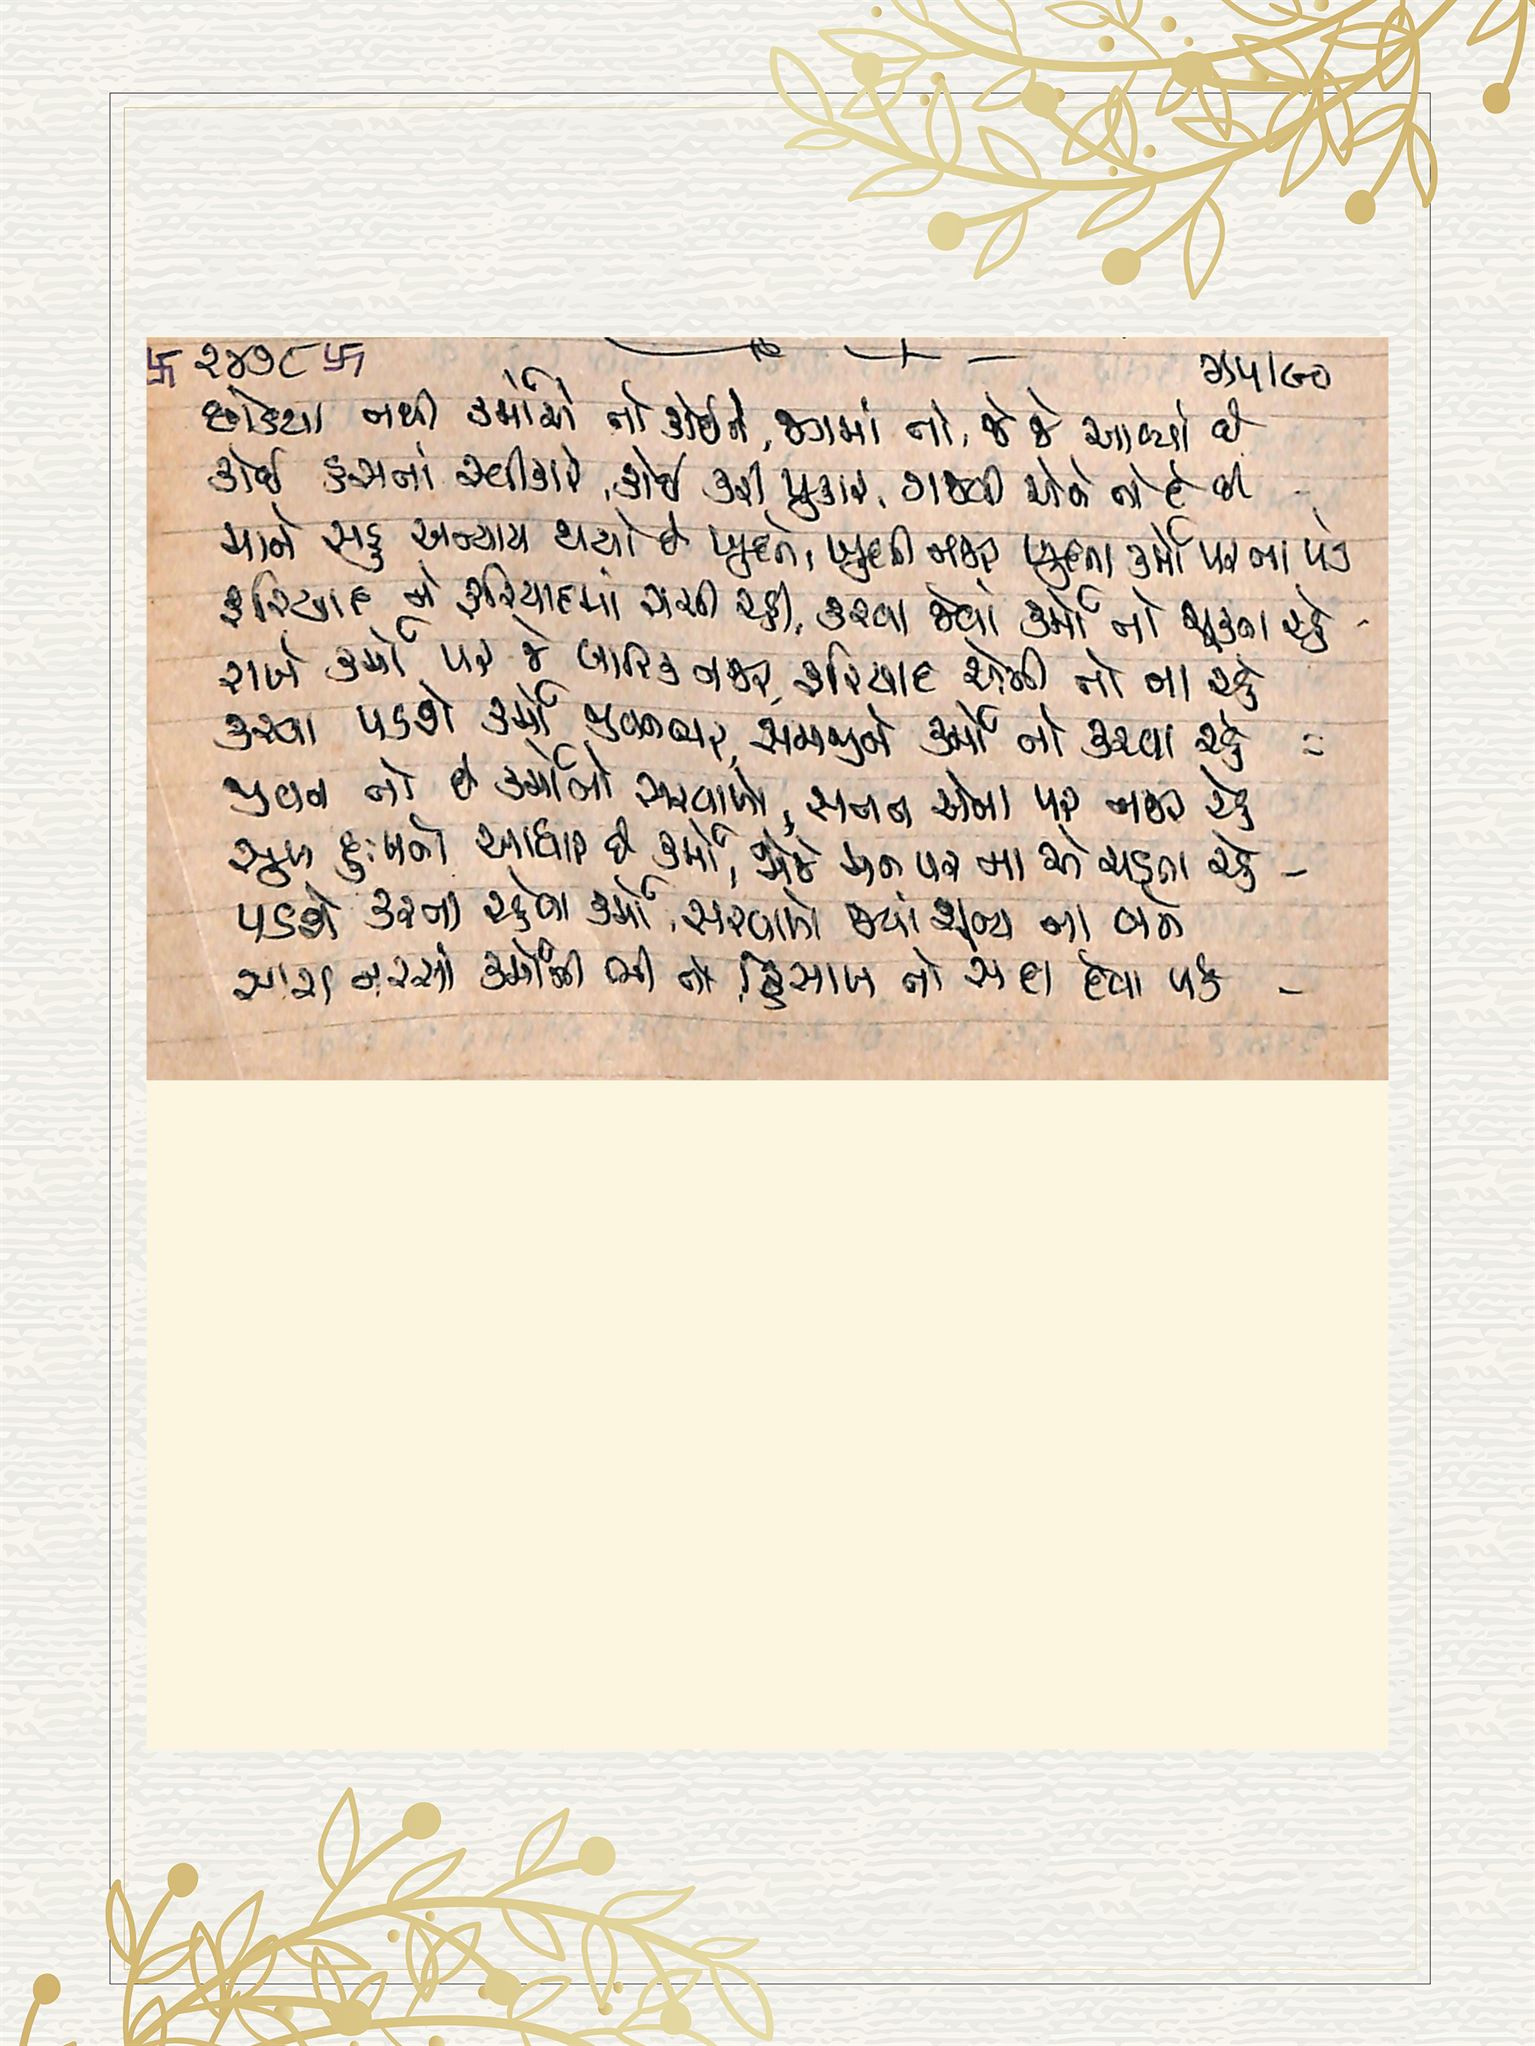 卐 ૨૪૭૮ 卐
૩૧૫/૯૦
છોડયા નથી કર્મોએ તો કોઈને, જગમાં તો, જે જે આવ્યાં છે
કોઈ હસતાં સ્વીકારે, કોઈ કરી પુકાર, ગજવી એને તો દે છે
માને સહુ અન્યાય થયો છે ખુદને, ખુદની નજર ખુદના કર્મો પર ના પડે
ફરિયાદ ને ફરિયાદમાં રાચી રહી, કરવા જેવાં કર્મો તો ચૂકતા રહે -
રાખે કર્મો પર જે બારિક નજર, ફરિયાદ એની તો ના રહે
કરવા પડશે કર્મો જીવનભર, સમજીને કર્મો તો કરવા રહે =
જીવન તો છે કર્મોનો સરવાળો, સતત એના પર નજર રહે
સુખ દુઃખનો આધાર છે કર્મો, જોજે મન પર ના એ ચડતા રહે -
પડશે કરતા રહેવા કર્મો, સરવાળો જ્યાં શૂન્ય ના બને
સારા નરસાં કર્મોની ભી તો, હિસાબ તો સદા દેવા પડે -